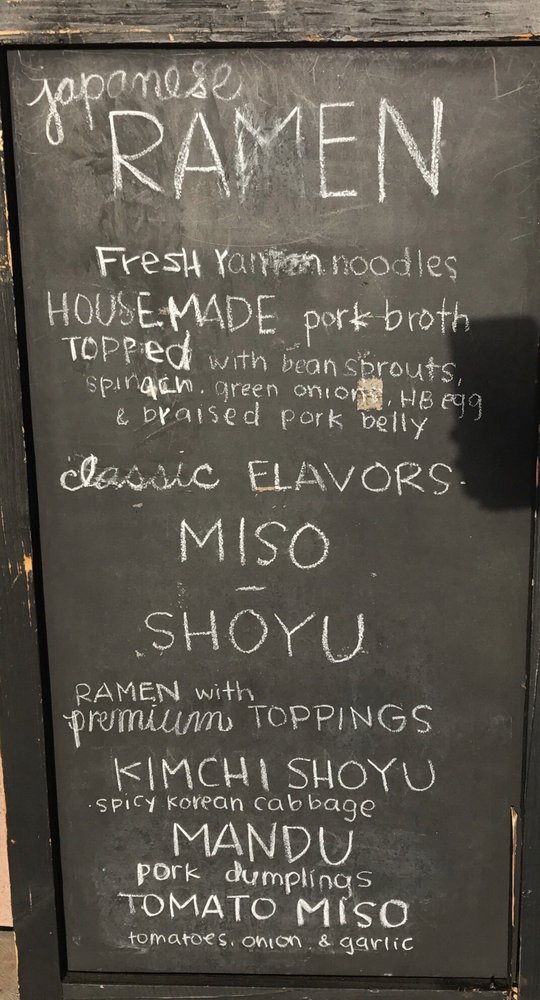 japanese
RAMEN
Fresh ramen noodles
HOUSEMADE pork broth
TOPPed with bean sprouts,
spinach, green onions, HB egg
& braised pork belly
classic FLAVORS
MISO
SHOYU
RAMEN with
premium TOPPINGS
KIMCHI SHOYU
spicy korean cabbage
MANDU
pork dumplings
TOMATO MISO
tomatoes, onion & garlic